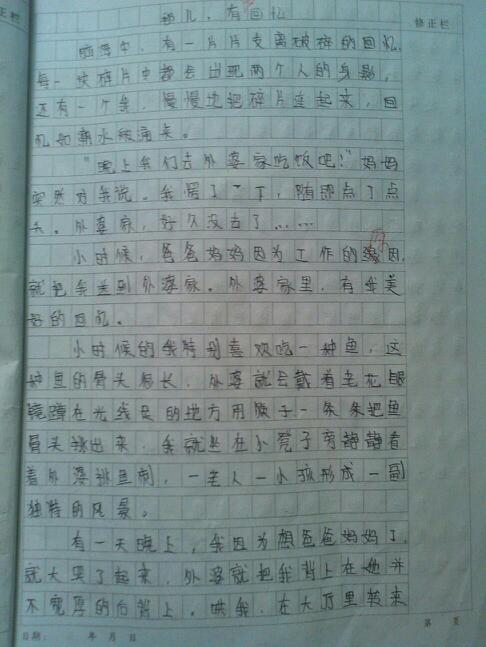 那儿，有回忆
修正栏
脑海中，有一片片支离破碎的回忆，
每一块碎片中都会出现两个人的身影，
还有一个家，慢慢地把碎片连起来，回
忆如潮水般涌来。
“晚上我们去外婆家吃饭吧！”妈妈
突然对我说。我愣了一下，随即点了点
头。外婆家，好久没去了……
小时候，爸爸妈妈因为工作的原因，
就把我送到外婆家。外婆家里，有我美
好的回忆。
小时候的我特别喜欢吃一种鱼，这
种鱼的骨头很长，外婆就会戴着老花眼
镜蹲在光线足的地方用筷子一条条把鱼
骨头挑出来，我就坐在小凳子旁静静看
着外婆挑鱼刺，一老人一小孩形成一副
独特的风景。
有一天晚上，我因为想爸爸妈妈了，
就大哭了起来，外婆就把我背上在她并
不宽厚的后背上。哄我，在大厅里转来
日期： 年 月 日
第 页